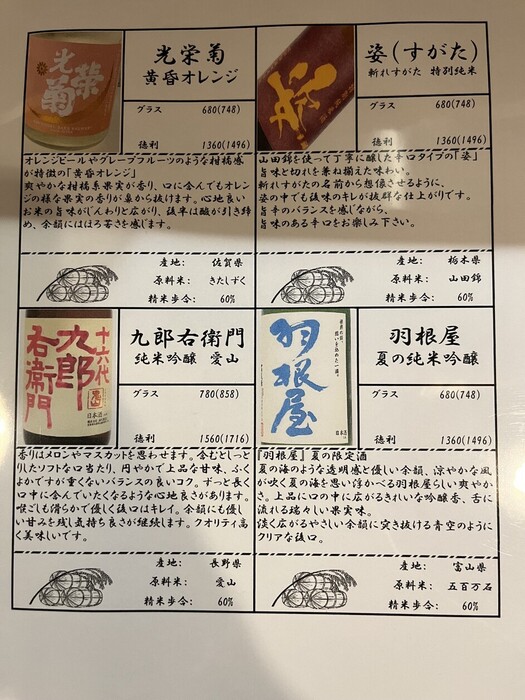 光栄菊
黄昏オレンジ
グラス 680(748)
徳利 1360(1496)
オレンジピールやグレープフルーツのような柑橘感
が特徴の「黄昏オレンジ」
爽やかな柑橘系果実が香り、口に含んでもオレン
ジの様な果実の香りが鼻から抜けます。心地良い
お米の旨味がじんわりと広がり、後半は酸が引き締
め、余韻にはほろ苦さを感じます。
産地: 佐賀県
原料米: きたしずく
精米歩合: 60%
姿(すがた)
斬れすがた 特別純米
グラス 680(748)
徳利 1360(1496)
山田錦を使って丁寧に醸した辛口タイプの「姿」
旨味と切れを兼ね揃えた味わい。
斬れすがたの名前から想像させるように、
姿の中でも後味のキレが抜群な仕上がりです。
旨辛のバランスを感じながら、
旨味のある辛口をお楽しみ下さい。
産地: 栃木県
原料米: 山田錦
精米歩合: 60%
十六代
九郎
右衛門
日本酒
九郎右衛門
純米吟醸 愛山
グラス 780(858)
徳利 1560(1716)
香りはメロンやマスカットを思わせます。含むとしっと
りしたソフトな口当たり、円やかで上品な甘味、ふく
よかですが重くないバランスの良いコク。ずっと長く
口中に含んでいたくなるような心地良さがあります。
喉ごしも滑らかで優しく後口はキレイ。余韻にも優し
い甘みを残し気持ち良さが継続します。クオリティ高
く美味しいです。
産地: 長野県
原料米: 愛山
精米歩合: 60%
羽根屋
羽根屋
夏の純米吟醸
グラス 680(748)
徳利 1360(1496)
『羽根屋』夏の限定酒
夏の海のような透明感と優しい余韻、涼やかな風
が吹く夏の海を思い浮かべる羽根屋らしい爽やか
さ。上品に口の中に広がるきれいな吟醸香、舌に
流れる瑞々しい果実味。
淡く広がるやさしい余韻に突き抜ける青空のように
クリアな後口。
産地: 富山県
原料米: 五百万石
精米歩合: 60%